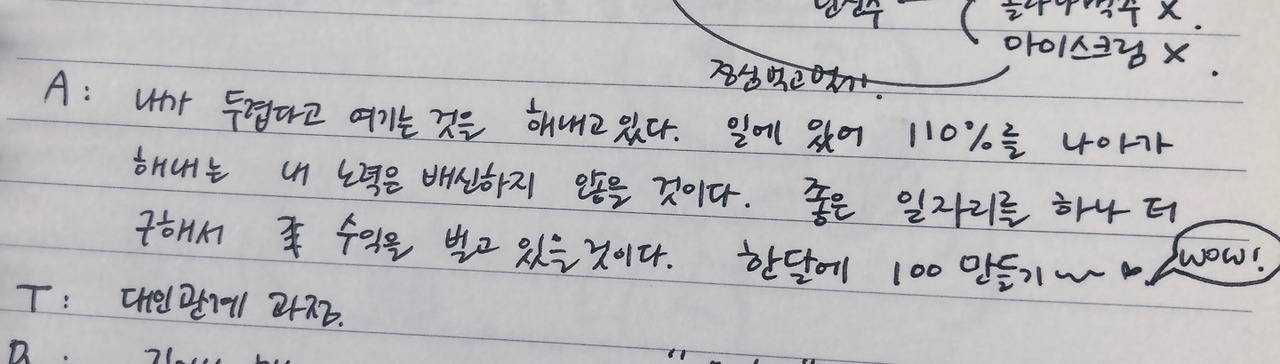 아이스크림 X.
점심 먹고 먹기.
A: 내가 두렵다고 여기는 것을 해내고 있다. 일에 있어 110%를 나아가
해내는 내 노력은 배신하지 않을 것이다. 좋은 일자리를 하나 더
구해서 수익을 벌고 있을 것이다. 한달에 100 만들기~~
wow!
T: 대인관계 과정.